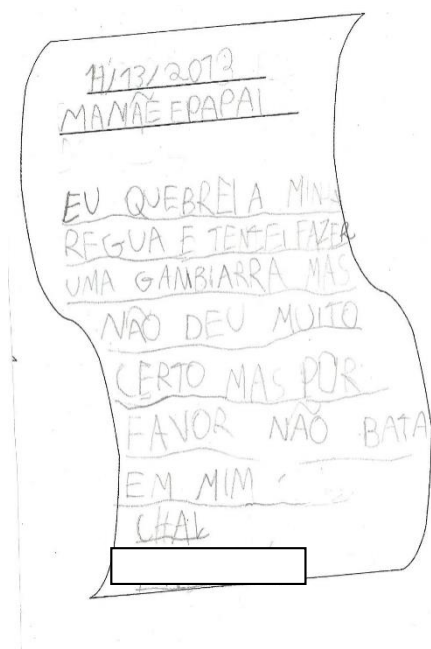 11/13/2013
MAMÃE EPAPAI
EU QUEBREI A
REGUA E TENTEI FAZER
UMA GAMBIARRA MAS
NÃO DEU MUITO
CERTO MAS POR
FAVOR NÃO BATA
EM MIM